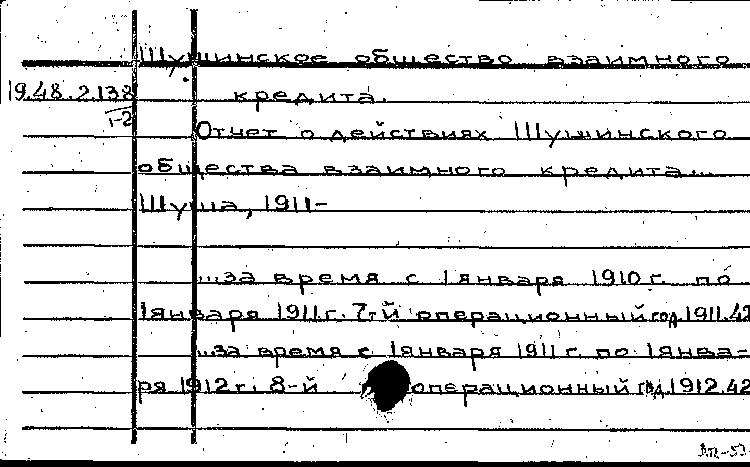 Шушинское общество взаимного
19.48.2.138 кредита.
1-2
Отчет о действиях Шушинского
общества взаимного кредита...
Шуша, 1911-
...за время с 1 января 1910 г. по
1 января 1911 г. 7-й операционный год 1911.42
...за время с 1 января 1911 г. по 1 янва-
ря 1912 г. 8-й операционный год 1912.42